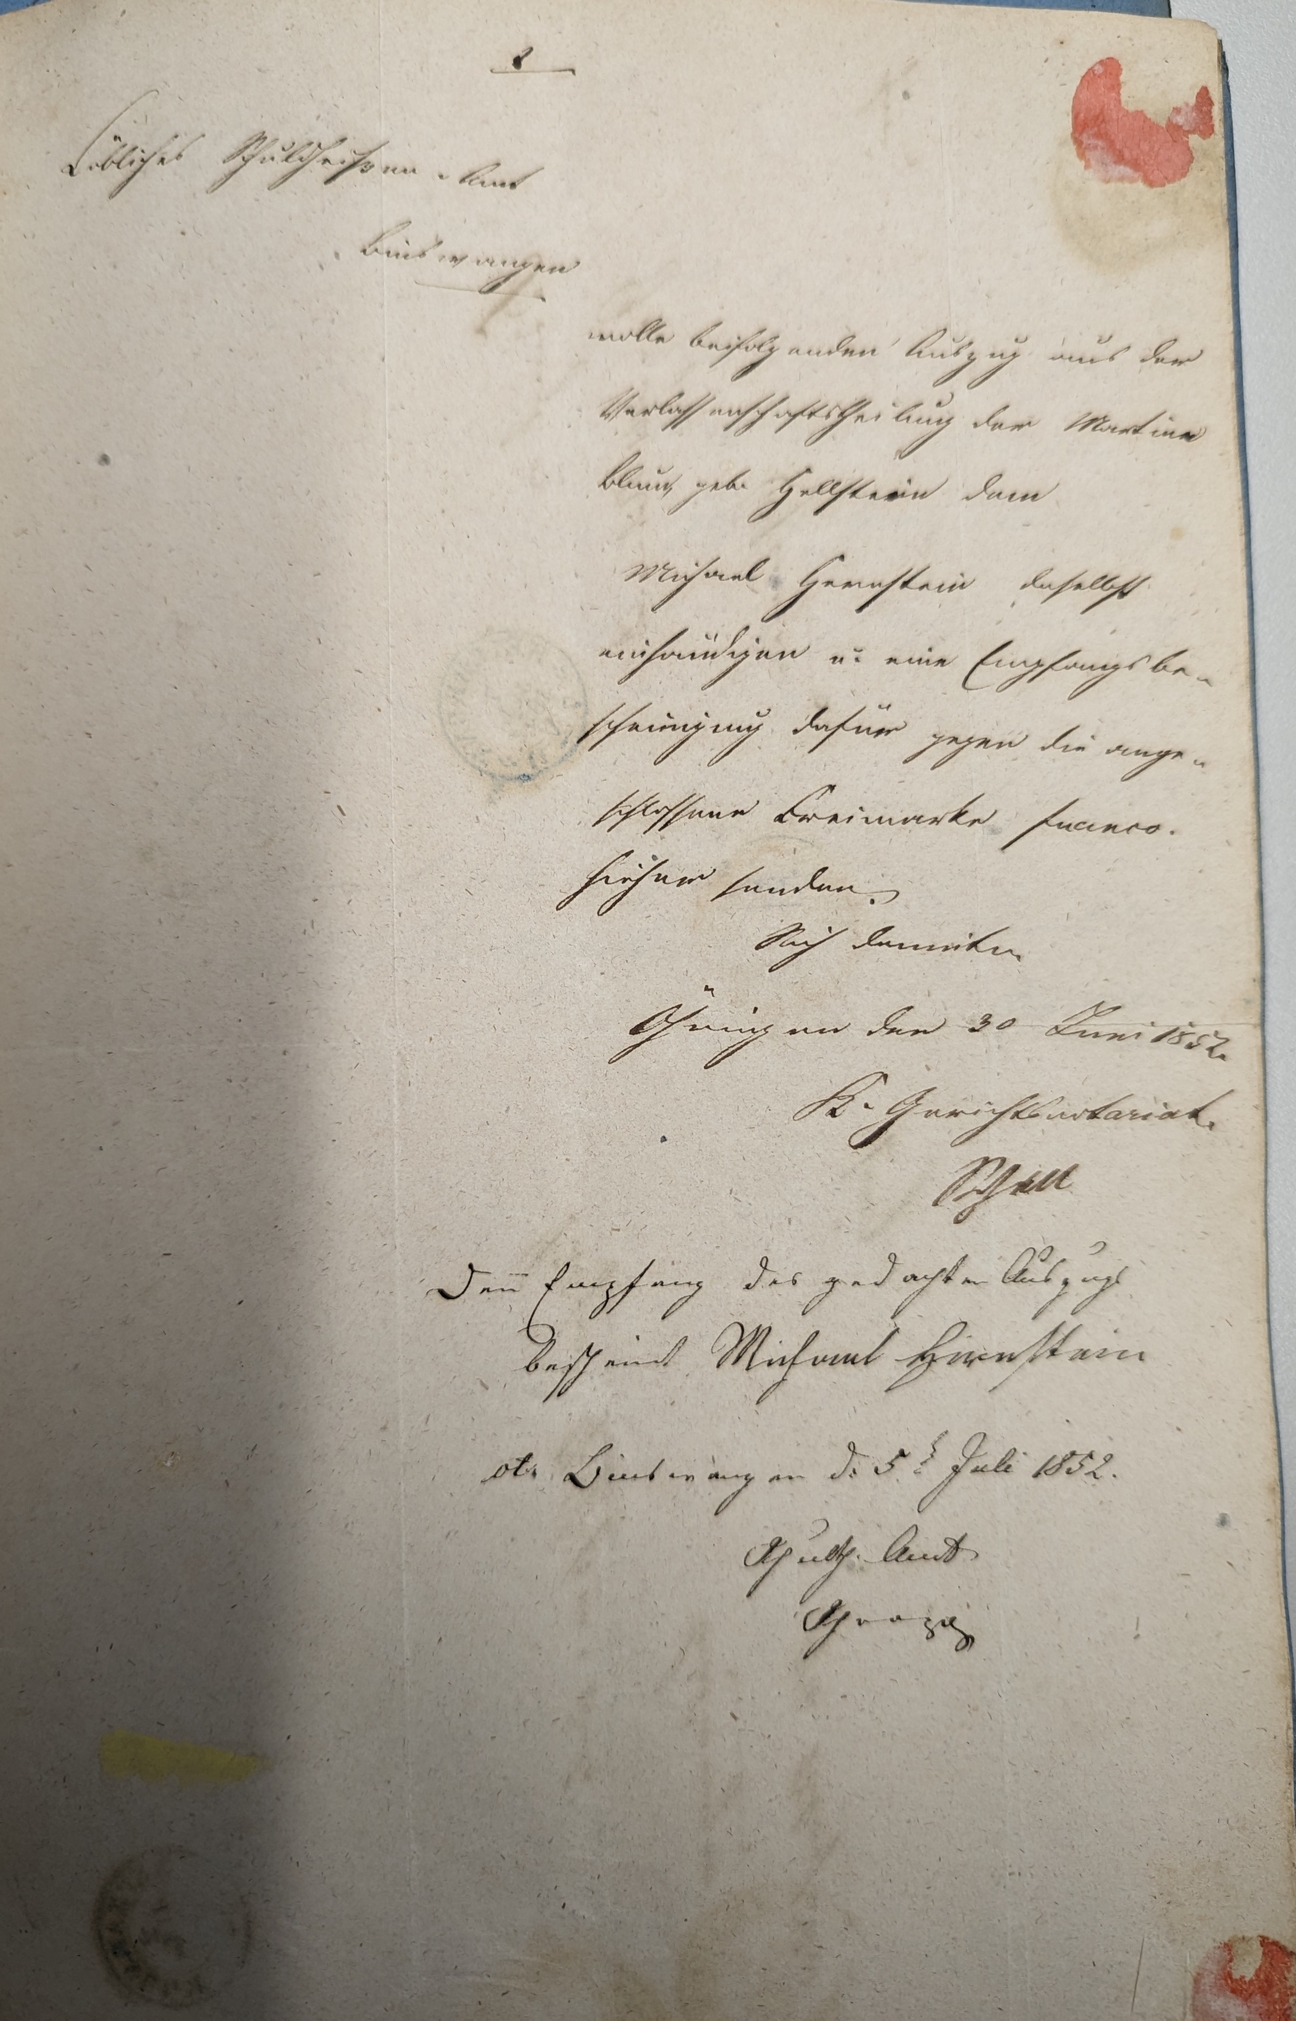 Löbliches Schuldheißen-Amt
Binswangen
wolle beifolgenden Auszug aus der
Verlassenschaftstheilung der Martin
Blum geb. Hellstein dem
Michael Hernstein daselbst
einhändigen u. eine Empfangsbe-
scheinigung dafür gegen die ange-
schlossene Freimarke franco
hieher senden.
Sich damit
Öhringen den 30 Juni 1852.
K. Gerichtsnotariat.
Schall
Den Empfang des gedachten Auszugs
bescheint Michael Hirnstein
Binswangen d. 5t Juli 1852.
Schulth. Amt